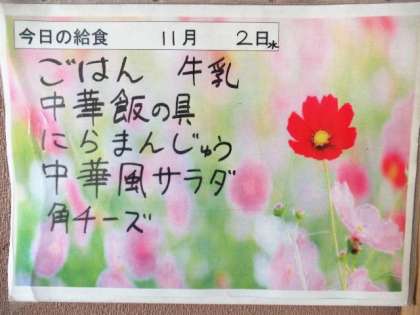 今日の給食 11月 2日水
ごはん 牛乳
中華飯の具
にらまんじゅう
中華風サラダ
角チーズ